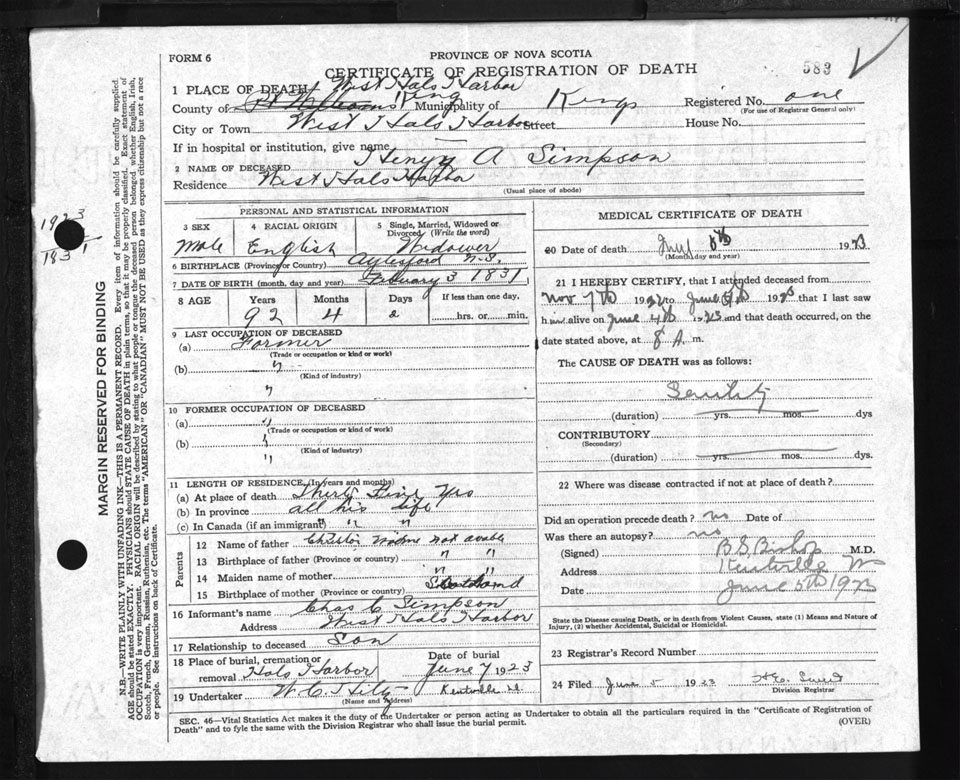 FORM 6
PROVINCE OF NOVA SCOTIA
CERTIFICATE OF REGISTRATION OF DEATH
583
1 PLACE OF DEATH West Hals Harbor
County of Kings Municipality of Kings Registered No. one
(For use of Registrar General only)
City or Town West Hals Harbor Street House No.
If in hospital or institution, give name
2 NAME OF DECEASED Henry A Simpson
Residence West Hals Harbor
(Usual place of abode)
PERSONAL AND STATISTICAL INFORMATION
3 SEX 4 RACIAL ORIGIN 5 Single, Married, Widowed or Divorced (Write the word)
Male English Widower
6 BIRTHPLACE (Province or Country) Aylesford N.S.
7 DATE OF BIRTH (month, day and year) February 3 1831
8 AGE Years Months Days If less than one day.
92 4 2 hrs. or min.
9 LAST OCCUPATION OF DECEASED
(a) Farmer
(Trade or occupation or kind or work)
(b) "
(Kind of industry)
"
10 FORMER OCCUPATION OF DECEASED
(a) "
(Trade or occupation or kind of work)
(b) "
(Kind of industry)
"
11 LENGTH OF RESIDENCE (In years and months)
(a) At place of death Thirty Five Yrs
(b) In province all his life
(c) In Canada (if an immigrant) " " "
Parents
12 Name of father Christir name not avable
13 Birthplace of father (Province or country) " "
14 Maiden name of mother " "
15 Birthplace of mother (Province or country)
16 Informant's name Chas C Simpson
Address West Hals Harbor
17 Relationship to deceased Son
18 Place of burial, cremation or removal Hals Harbor Date of burial June 7 1923
19 Undertaker W. C. Kentville
(Name and address)
MEDICAL CERTIFICATE OF DEATH
20 Date of death 1923
(Month, day and year)
21 I HEREBY CERTIFY, that I attended deceased from
Nov 7th 1922 to June 1923 that I last saw
him alive on June 4th 1923 and that death occurred, on the
date stated above, at 8 A. m.
The CAUSE OF DEATH was as follows:
Senility
(duration) yrs. mos. dys
CONTRIBUTORY
(Secondary)
(duration) yrs. mos. dys.
22 Where was disease contracted if not at place of death?
Did an operation precede death? no Date of
Was there an autopsy? no
(Signed) B. S. Bishop M.D.
Address Kentville
Date June 5th 1923
State the Disease causing Death, or in death from Violent Causes, state (1) Means and Nature of
Injury, (2) whether Accidental, Suicidal or Homicidal.
23 Registrar's Record Number
24 Filed June 5 1923
Division Registrar
SEC. 46—Vital Statistics Act makes it the duty of the Undertaker or person acting as Undertaker to obtain all the particulars required in the "Certificate of Registration of
Death" and to fyle the same with the Division Registrar who shall issue the burial permit.
(OVER)
1923
1831
MARGIN RESERVED FOR BINDING
N.B.—WRITE PLAINLY WITH UNFADING INK—THIS IS A PERMANENT RECORD. Every item of information should be carefully supplied
AGE should be stated EXACTLY. PHYSICIANS should STATE CAUSE OF DEATH in plain terms, so that it may be properly classified. Exact statement of
OCCUPATION is very important. RACIAL ORIGIN will be described by stating to what people or tongue the deceased person belonged whether English, Irish,
Scotch, French, German, Russian, Ruthenian, etc. The terms "AMERICAN" OR "CANADIAN" MUST NOT BE USED as they express citizenship but not a race
or people. See instructions on back of Certificate.